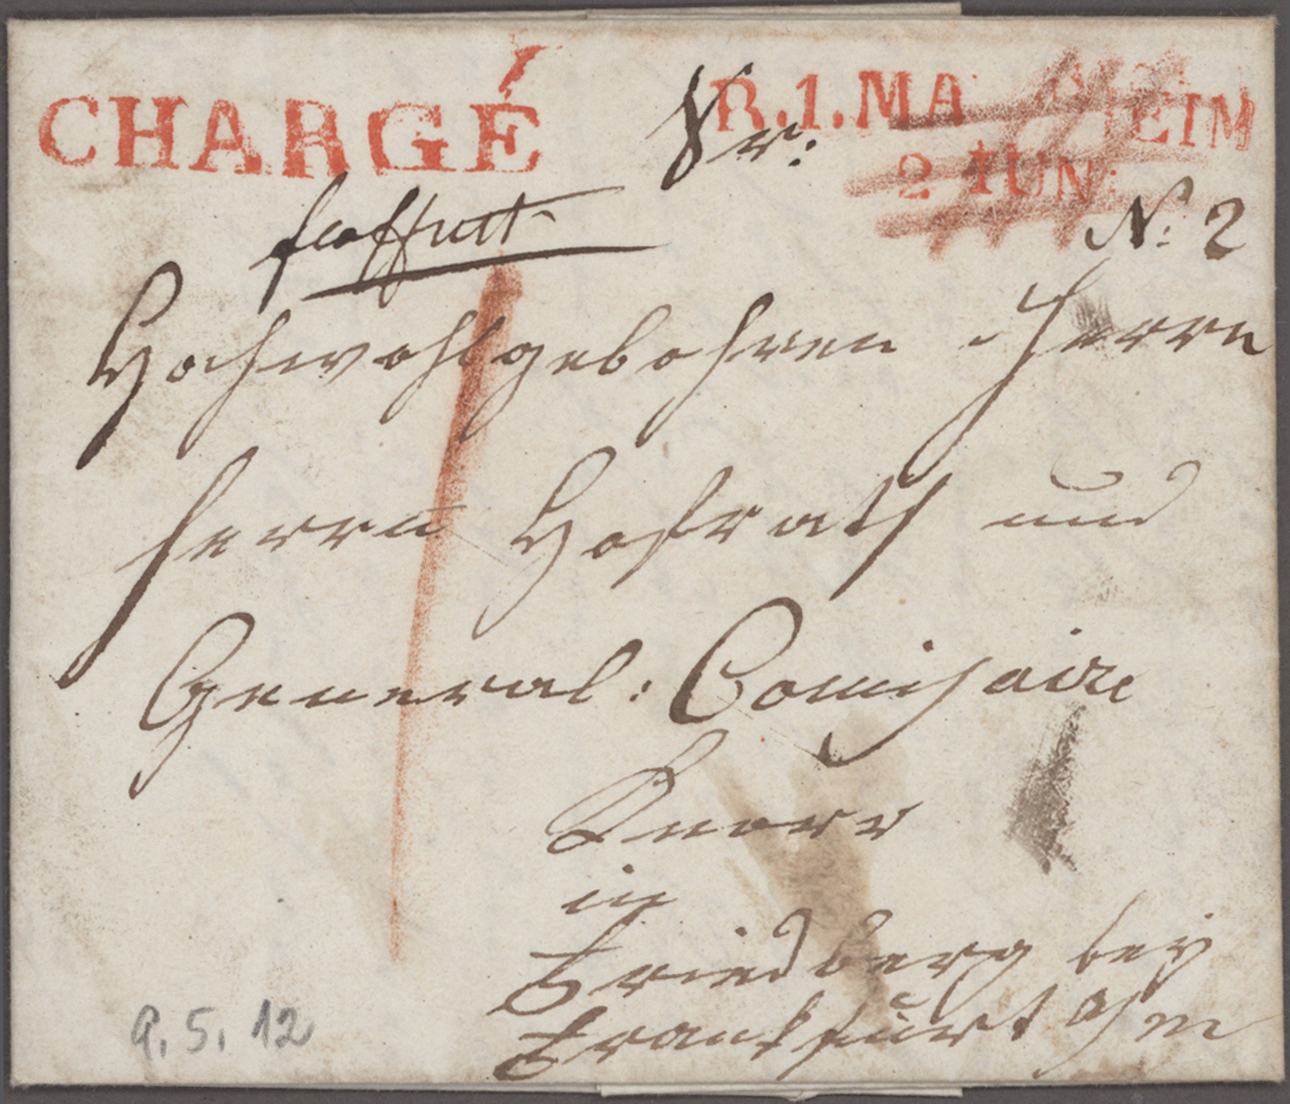 CHARGÉ
R.1.MA EIM
2 JUN:
Sr:
N: 2
Hochwohlgebohren Herrn
Herrn Hofrath und
General: Comisaire
Knorr
in
Friedberg bey
Frankfurt a/m
5. 12